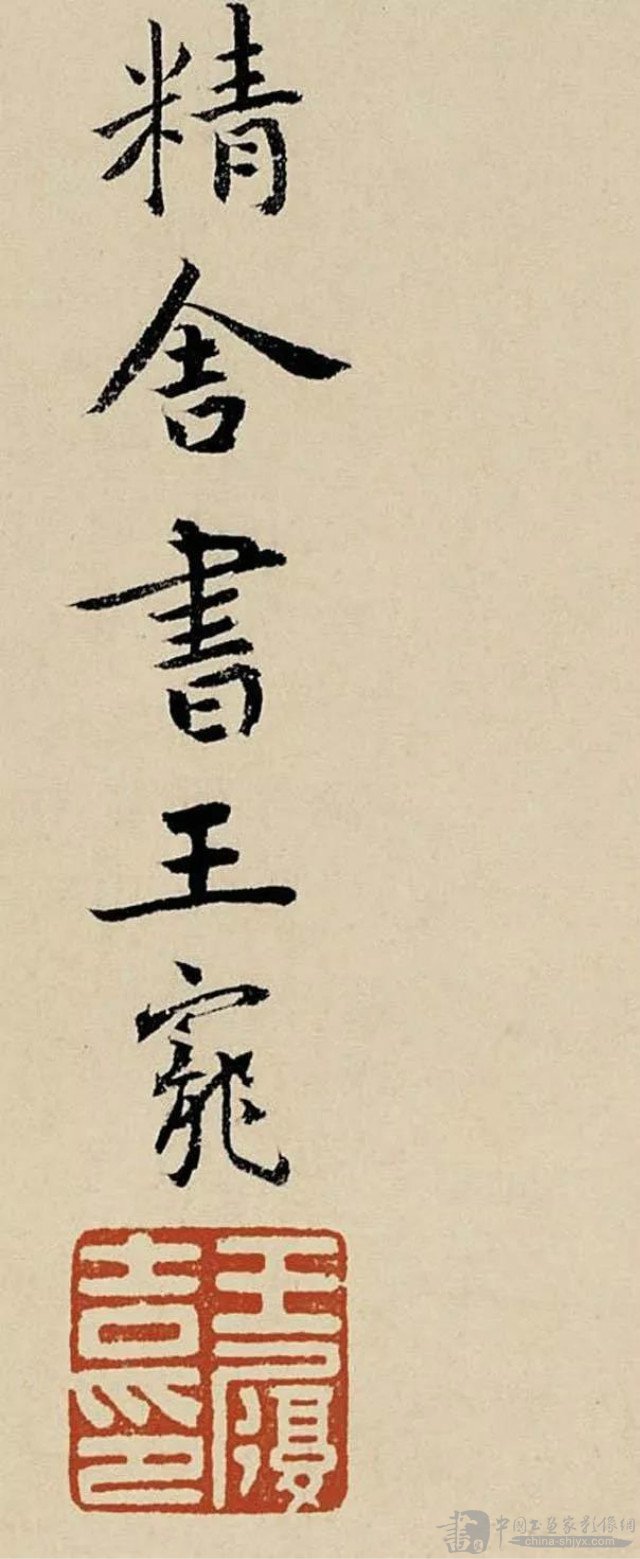 精舍書王寵
王履吉印
書
中國书画家影像網
china-shjyx.com